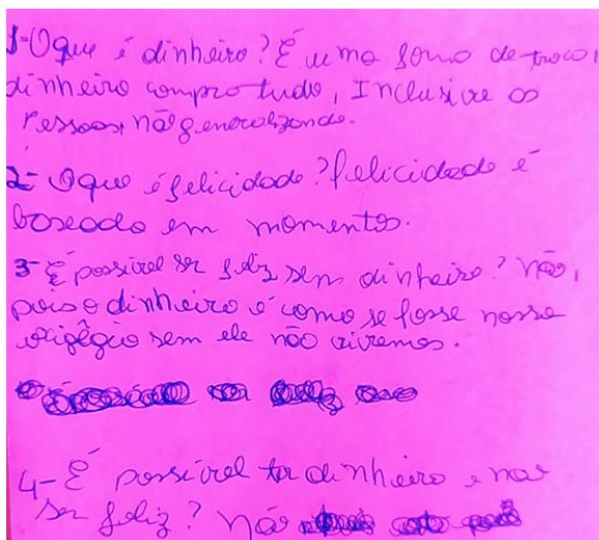 1-O que é dinheiro? É uma forma de troca,
dinheiro compra tudo, Inclusive as
Pessoas, não generalizando.
2- O que é felicidade? felicidade é
baseada em momentos.
3-É possivel ser feliz sem dinheiro? Não,
pois o dinheiro é como se fosse nosso
sem ele não vivemos.
4-É possivel ter dinheiro e nao
ser feliz? Não